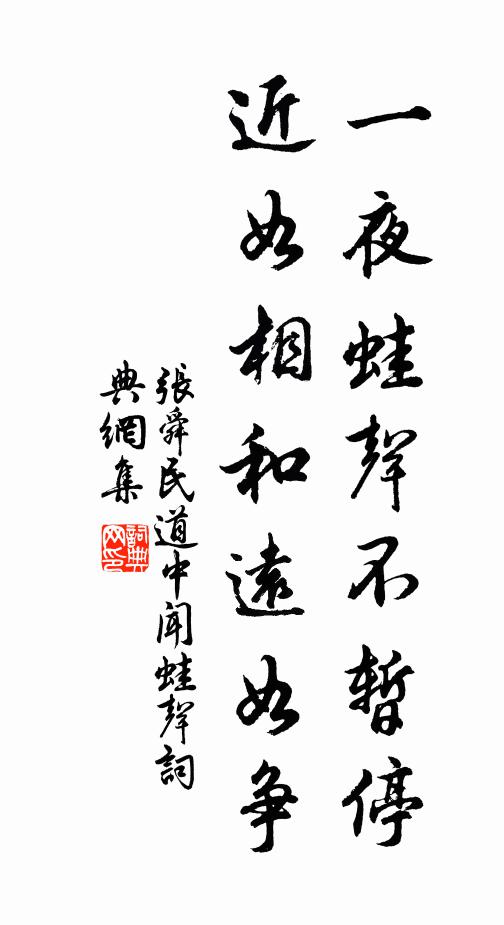 一夜蛙聲不暫停
近如相和遠如爭
張舜民道中聞蛙聲詞
典網集
詞典網印